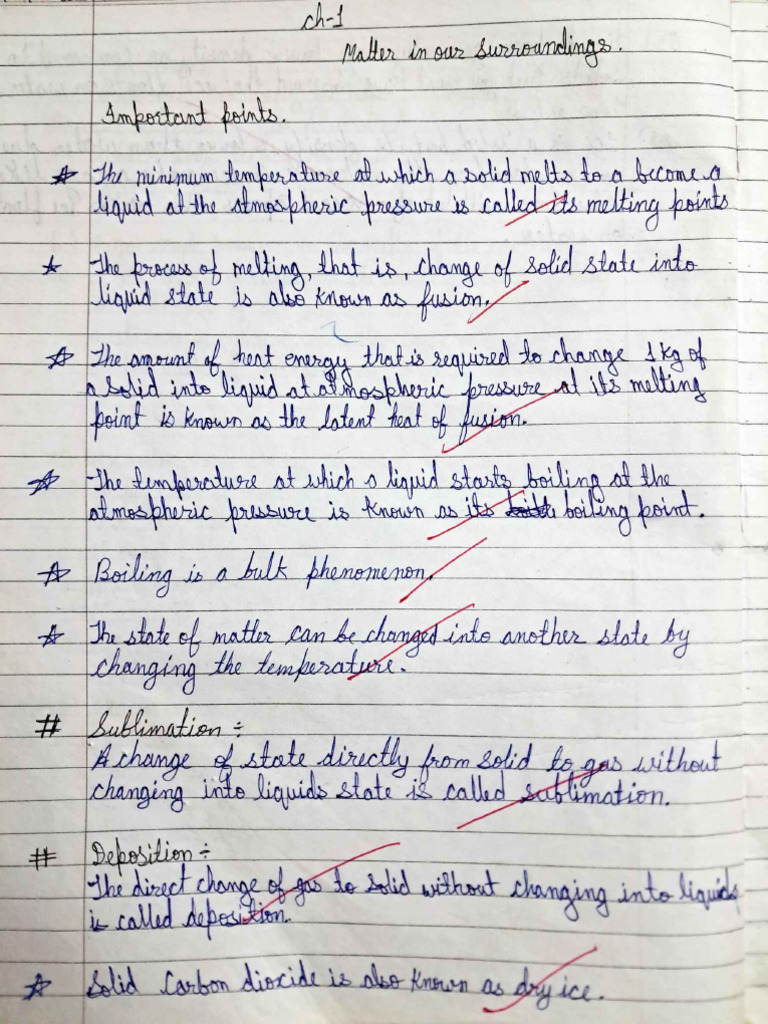 ch-1
Matter in our surroundings.
Important points.
☆ The minimum temperature at which a solid melts to a become a
liquid at the atmospheric pressure is called its melting points
☆ The process of melting, that is, change of solid state into
liquid state is also known as fusion.
☆ The amount of heat energy that is required to change 1kg of
a solid into liquid at atmospheric pressure at its melting
point is known as the latent heat of fusion.
☆ The temperature at which a liquid starts boiling at the
atmospheric pressure is known as its boiling point.
☆ Boiling is a bulk phenomenon.
☆ The state of matter can be changed into another state by
changing the temperature.
# Sublimation ÷
A change of state directly from solid to gas without
changing into liquids state is called sublimation.
# Deposition ÷
The direct change of gas to solid without changing into liquids
is called deposition.
☆ Solid Carbon dioxide is also known as dry ice.